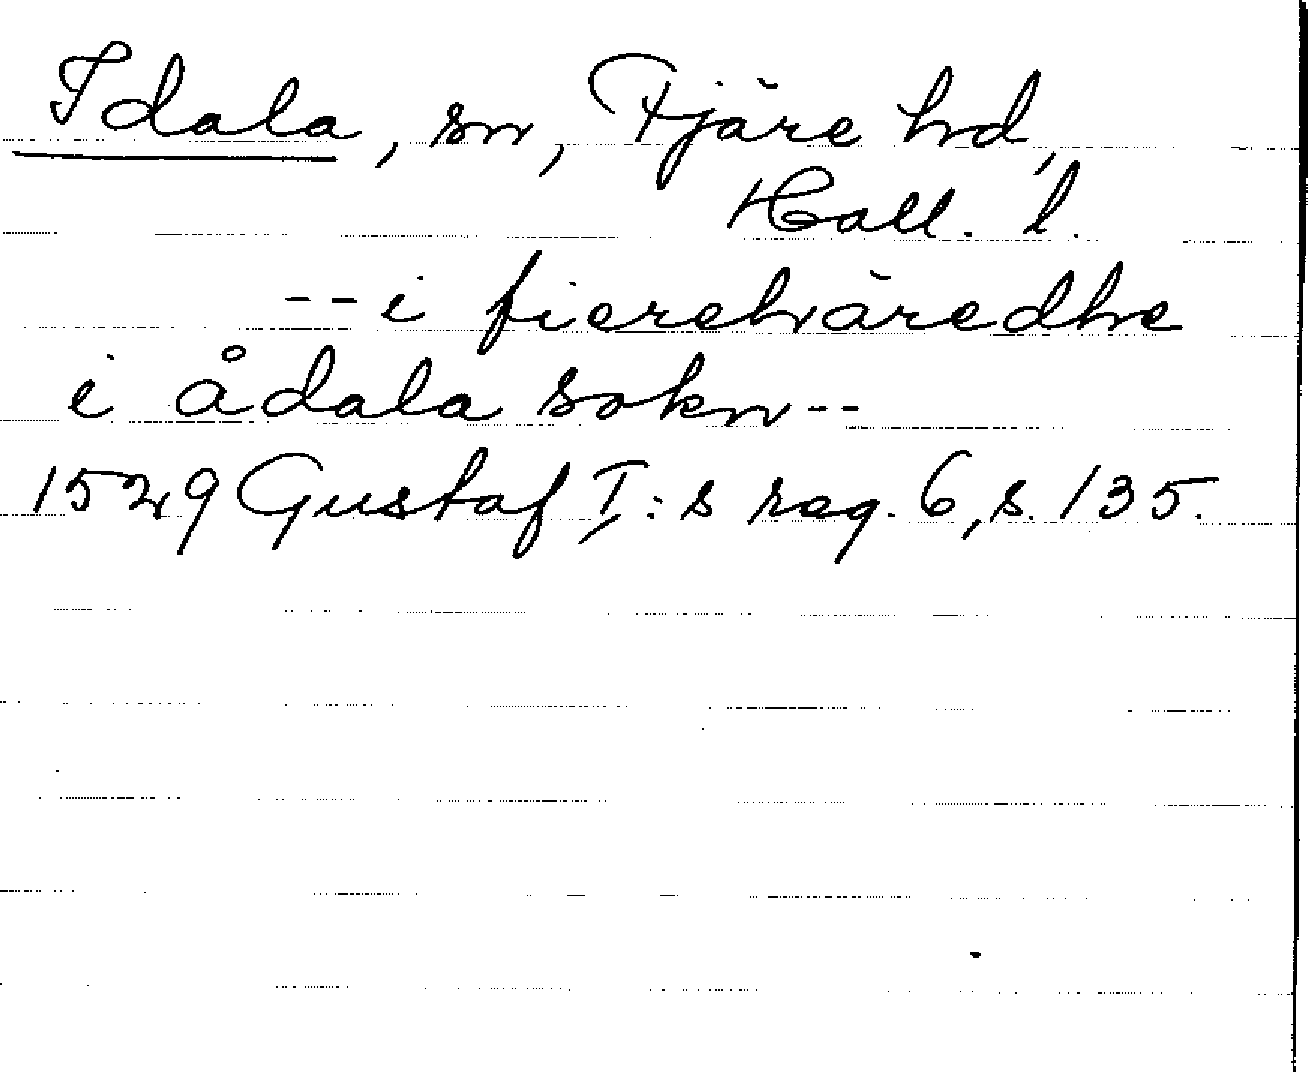 Idala, sn, Fjäre hd,
Hall. l.
-- i fierehäredhe
i ådala sokn --
1529 Gustaf I:s reg. 6, s. 135.